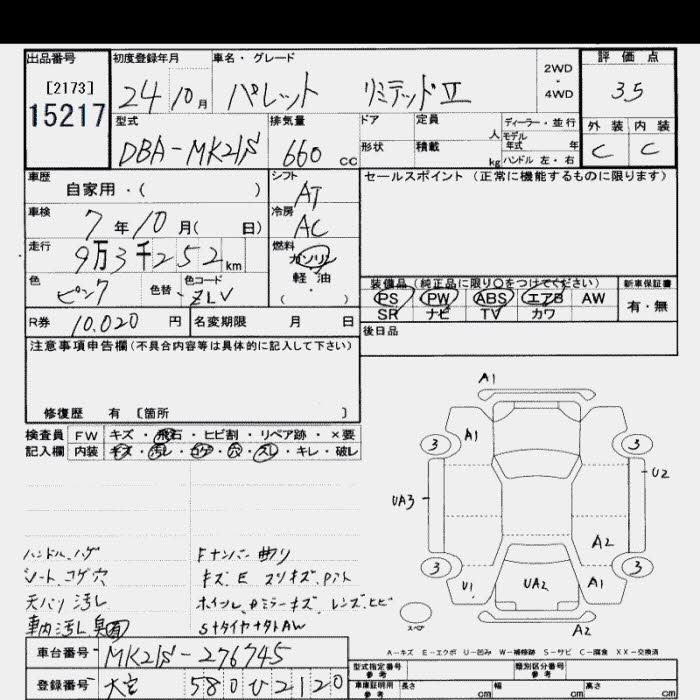 出品番号 初度登録年月 車名・グレード 評価点
[2173] 15217 24 10月 パレット リミテッドⅡ 2WD・4WD 3.5
型式 排気量 ドア 定員 人 ディーラー・並行 外装 内装
DBA-MK21S 660 cc 形状 積載 kg モデル年式 年 ハンドル 左・右 C C
車歴 シフト セールスポイント (正常に機能するものに限ります)
自家用・( ) AT
車検 冷房
7年10月( 日) AC
走行 燃料
9万3千252km ガソリン
色 色替 色コード 軽油 装備品(純正品に限り○をつけてください) 新車保証書
ピンク ZLV ( ・ ) PS PW ABS エアB AW 有・無
SR ナビ TV カワ
R券 10,020 円 名変期限 月 日 後日品
注意事項申告欄(不具合内容等は具体的に記入して下さい)
修復歴 有 [箇所 ]
検査員 FW キズ・飛石・ヒビ割・リペア跡・×要
記入欄 内装 キズ・汚レ・コゲ・穴・スレ・キレ・破レ
A1
3 A1 3
UA3 U2
A2
3 U1 UA2 A1 3
スペア A2
ハンドル.ハゲ Fナンバー曲り
シート.コゲ穴 キズ.E スリキズ.Pアト
天バリ汚レ ホイール.Pミラーキズ レンズヒビ
車内汚レ臭有 S+タイヤ+タトAW
A-キズ E-エクボ U-凹み W-補修跡 S-サビ C-腐食 XX-交換済
車台番号 MK21S-276745 型式指定番号 参考 類別区分番号 参考
登録番号 大宮 580 ひ 2120 車庫証明用 参考 長さ cm 幅 cm 高さ cm